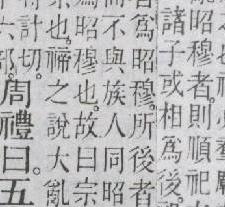 昭穆者。則順祀
諸子或相爲後
爲昭穆。所後者
而不與族人同昭
爲昭穆也。故曰宗
也。禘之說大亂
計切。
六部。
周禮曰。五